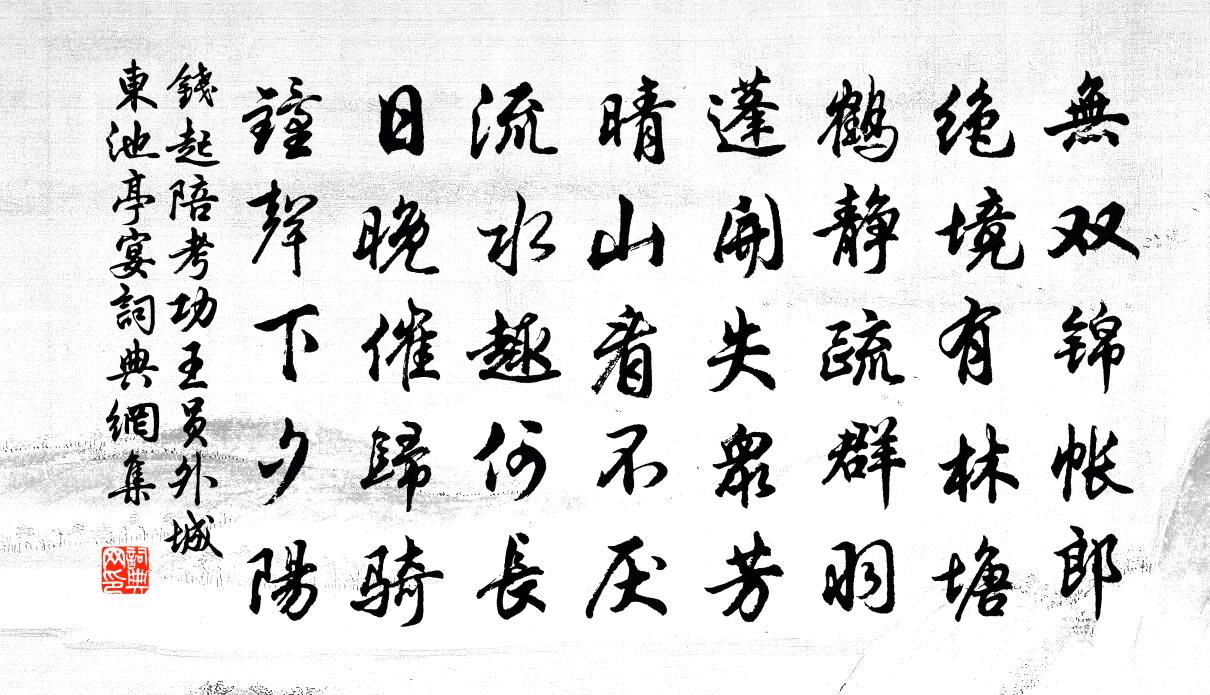 無双锦帐郎
绝境有林塘
鹤静疏群羽
蓬開失眾芳
晴山看不厌
流水趣何長
日晚催歸骑
鐘聲下夕陽
錢起陪考功王员外城
東池亭宴詞典網集
詞典网印